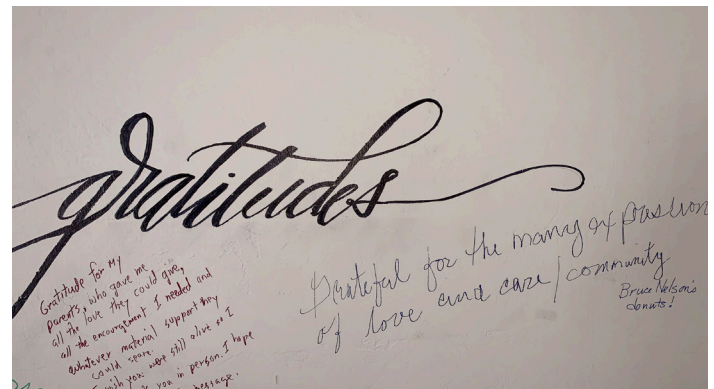 gratitudes
Gratitude for My
parents, who gave me
all the love they could give,
all the encouragement I needed and
whatever material support they
could spare.
I wish you were still alive so I
you in person. I hope
message.
Grateful for the many expression
of love and care / community
Bruce Nelson's
donuts!